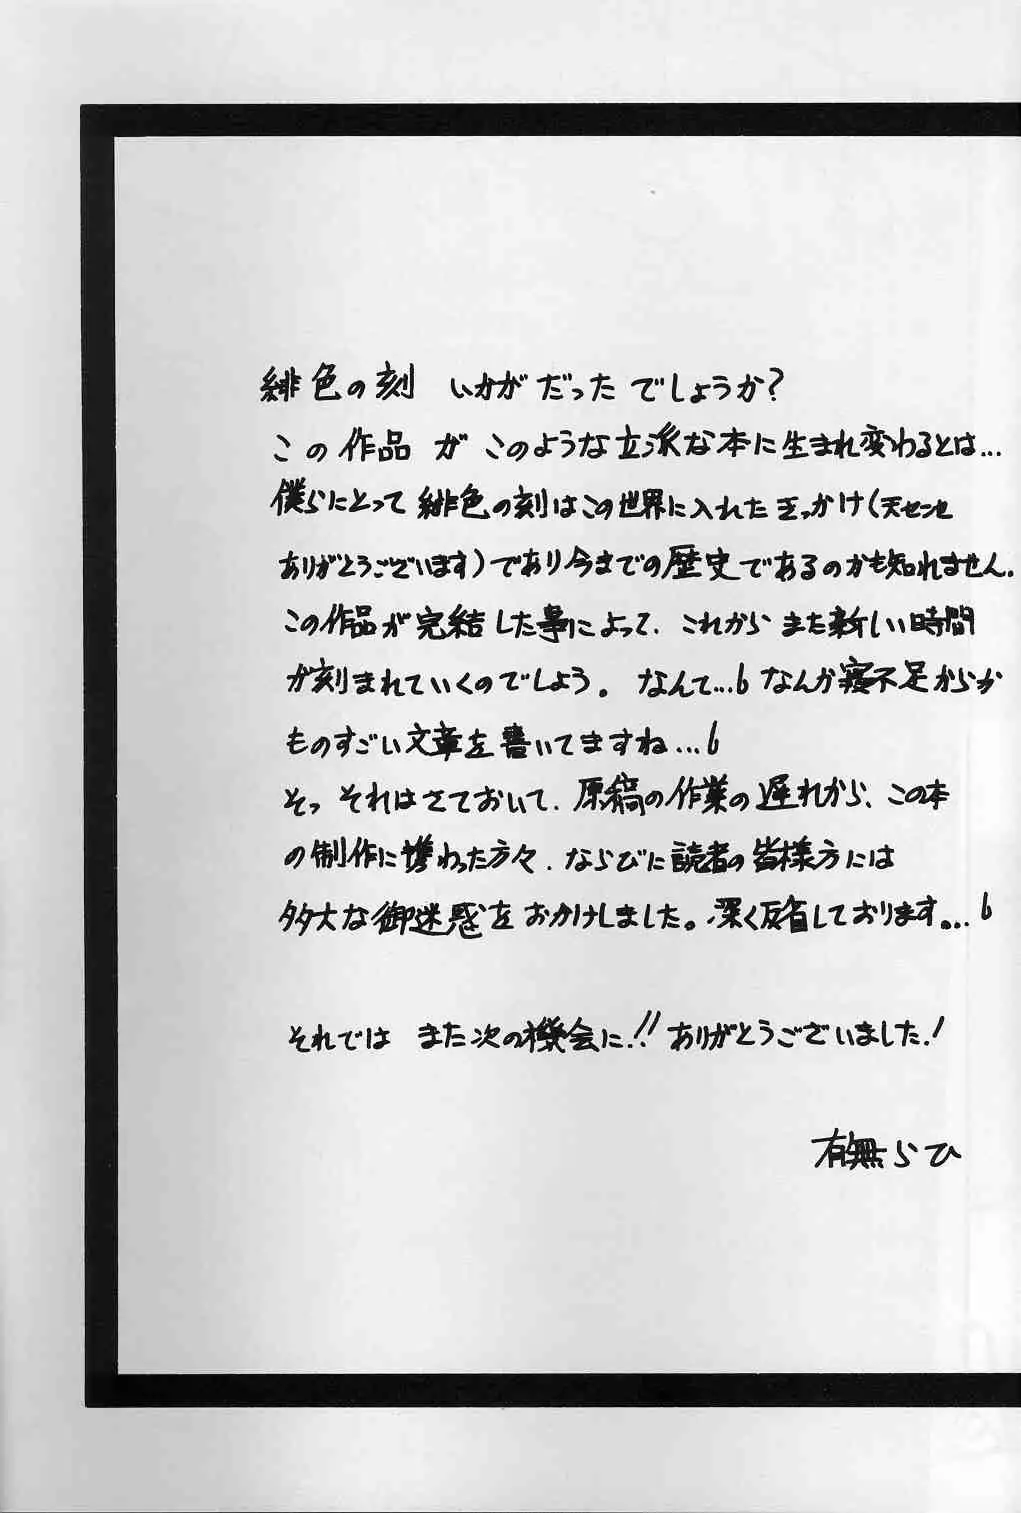 緋色の刻 いかがだったでしょうか?
この作品が このような立派な本に生まれ変わるとは...
僕らにとって緋色の刻はこの世界に入れたきっかけ(天センセ
ありがとうございます)であり今までの歴史であるのかも知れません.
この作品が完結した事によって、これからまた新しい時間
が刻まれていくのでしょう。なんて...6 なんか寝不足からか
ものすごい文章を書いてますね...6
そっ それはさておいて、原稿の作業の遅れから、この本
の制作に携わった方々、ならびに読者の皆様方には
多大な御迷惑をおかけしました。深く反省しております。...6
それでは また次の機会に!! ありがとうございました!
有無らひ